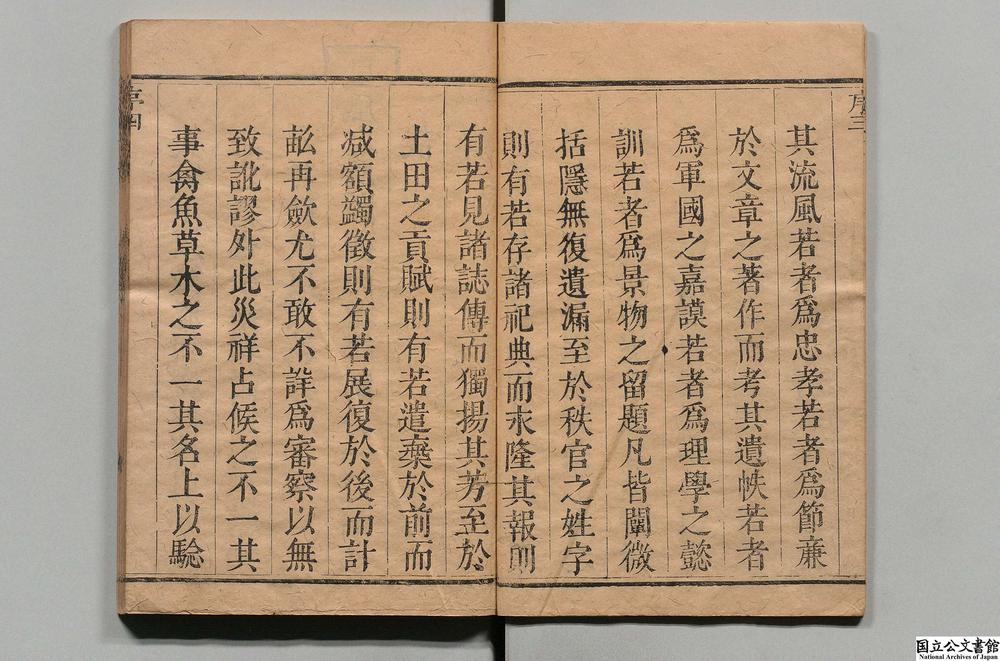 序三
其流風若者爲忠孝若者爲節亷
於文章之著作而考其遺帙若者
爲軍國之嘉謨若者爲理學之懿
訓若者爲景物之留題凡皆闡微
括隱無復遺漏至於秩官之姓字
則有若存諸祀典而永隆其報則
有若見諸誌傳而獨揚其芳至於
土田之貢賦則有若遣棄於前而
减額蠲徵則有若展復於後而計
畆再歛尤不敢不詳爲審察以無
致訛謬外此災祥占候之不一其
事禽魚草木之不一其名上以驗
序四
国立公文書館
National Archives of Japan